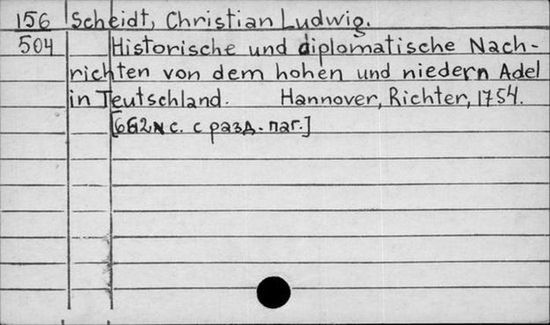 156 Scheidt, Christian Ludwig.
504 Historische und diplomatische Nach-
richten von dem hohen und niedern Adel
in Teutschland. Hannover, Richter, 1754.
с. с разд. паг.]